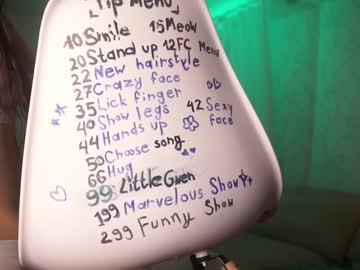 Tip Menu
10 Smile 15 Meow
20 Stand up 12 FC Menu
22 New hairstyle
27 Crazy face
35 Lick finger
40 Show legs 42 Sexy face
44 Hands up
50 Choose song
66 Hug
99 Little Gwen
199 Marvelous Show
299 Funny Show